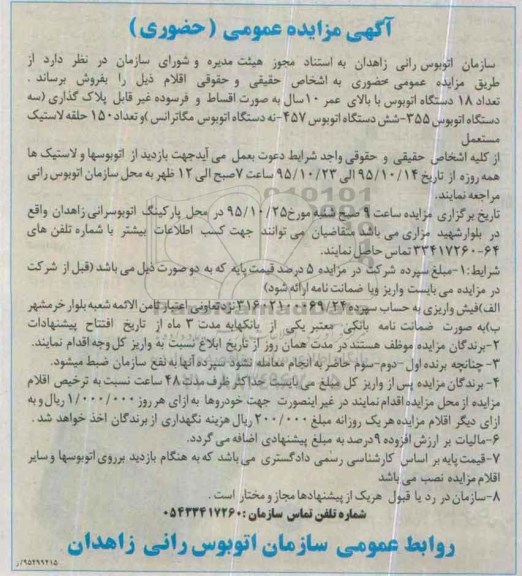 آگهی مزایده عمومی (حضوری)
سازمان اتوبوس رانی زاهدان به استناد مجوز هیئت مدیره و شورای سازمان در نظر دارد از
طریق مزایده عمومی حضوری به اشخاص حقیقی و حقوقی اقلام ذیل را بفروش برساند .
تعداد ۱۸ دستگاه اتوبوس با بالای عمر ۱۰سال به صورت اقساط و فرسوده غیر قابل پلاک گذاری (سه
دستگاه اتوبوس ۳۵۵-شش دستگاه اتوبوس ۴۵۷-نه دستگاه اتوبوس مگاترانس )و تعداد۱۵۰ حلقه لاستیک
مستعمل
از کلیه اشخاص حقیقی و حقوقی واجد شرایط دعوت بعمل می آیدجهت بازدید از اتوبوسها و لاستیک ها
همه روزه از تاریخ ۹۵/۱۰/۱۴ الی ۹۵/۱۰/۲۳ ساعت ۷صبح الی ۱۲ ظهر به محل سازمان اتوبوس رانی
مراجعه نمایند.
تاریخ برگزاری مزایده ساعت ۹ صبح شنبه مورخ۹۵/۱۰/۲۵ در محل پارکینگ اتوبوسرانی زاهدان واقع
در بلوارشهید مزاری می باشد متقاضیان می توانند جهت کسب اطلاعات بیشتر با شماره تلفن های
۶۴-۳۳۴۱۷۲۶۰ تماس حاصل نمایند.
شرایط:۱-مبلغ سپرده شرکت در مزایده ۵ درصد قیمت پایه که به دو صورت ذیل می باشد (قبل از شرکت
در مزایده می بایست واریز ویا ضمانت نامه ارائه شود)
الف)فیش واریزی به حساب سپرده ۳۱۶۰۲۱۰۰۰۶۹/۲۴ نزدتعاونی اعتبار ثامن الائمه شعبه بلوار خرمشهر
ب)به صورت ضمانت نامه بانکی معتبر یکی از بانکهابه مدت ۳ ماه از تاریخ افتتاح پیشنهادات
۲-برندگان مزایده موظف هستند در مدت همان روز از تاریخ ابلاغ نسبت به واریز کل وجه اقدام نمایند.
۳- چنانچه برنده اول -دوم-سوم حاضر به انجام معامله نشود سپرده آنها به نفع سازمان ضبط میشود.
۴- برندگان مزایده پس از واریز کل مبلغ می بایست حداکثر ظرف مدت ۴۸ ساعت نسبت به ترخیص اقلام
مزایده از محل مزایده اقدام نمایند در غیر اینصورت جهت خودروها به ازای هر روز ۱/۰۰۰/۰۰۰ ریال و به
ازای دیگر اقلام مزایده هر یک روزانه مبلغ ۲۰۰/۰۰۰ ریال هزینه نگهداری از برندگان اخذ خواهد شد .
۶-مالیات بر ارزش افزوده ۹درصد به مبلغ پیشنهادی اضافه می گردد.
۷-قیمت پایه بر اساس کارشناسی رسمی دادگستری می باشد که به هنگام بازدید برروی اتوبوسها و سایر
اقلام مزایده نصب می باشد
۸-سازمان در رد یا قبول هریک از پیشنهادها مجاز و مختار است .
شماره تلفن تماس سازمان :۰۵۴۳۳۴۱۷۲۶۰
روابط عمومی سازمان اتوبوس رانی زاهدان
۹۵۲۹۹۲۱۵/ز